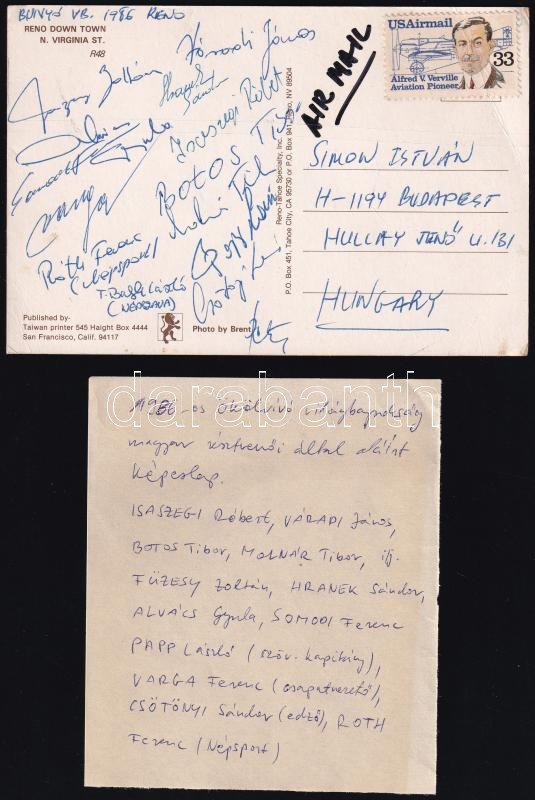 BUNYÓ VB. 1986 RENO
RENO DOWN TOWN
N. VIRGINIA ST.
R48
Váradi János
Hranek
Sándor
Isaszegi Róbert
BOTOS Tibor
Róth Ferenc
(Népsport)
T. László
(NÉPSZAVA)
Published by:
Taiwan printer 545 Haight Box 4444
San Francisco, Calif. 94117
Photo by Brent
Reno-Tahoe Specialty, Inc.
P.O. Box 451, Tahoe City, CA 95730 or P.O. Box 941, Reno, NV 89504
AIR MAIL
USAirmail
33
Alfred V. Verville
Aviation Pioneer
SIMON ISTVÁN
H-1194 BUDAPEST
HULLAY JENŐ U. 131
HUNGARY
darabanth
1986-os ökölvívó világbajnokság
magyar résztvevői által aláírt
képeslap.
ISASZEGI Róbert, VÁRADI János,
BOTOS Tibor, MOLNÁR Tibor, ifj.
FÜZESY Zoltán, HRANEK Sándor,
ALVÁCS Gyula, SOMODI Ferenc
PAPP László (szöv. kapitány),
VARGA Ferenc (csapatvezető),
CSÖTÖNYI Sándor (edző), ROTH
Ferenc (Népsport)